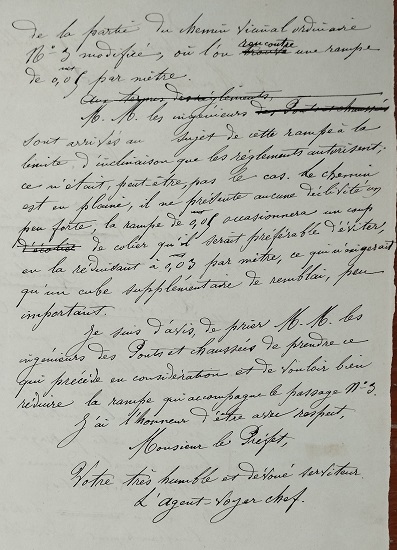 de la partie du chemin vicinal ordinaire
N° 3 modifiée, où l'on rencontre trouve une rampe
de 0,05 par mètre.
Aux termes des règlements,
M. M. les ingénieurs des Ponts et chaussés
sont arrivés au sujet de cette rampe à la
limite d'inclinaison que les règlements autorisent;
ce n'était, peut-être, pas le cas. Le chemin
est en plaine, il ne présente aucune déclivité un
peu forte, la rampe de 0,05 occasionnera un coup
de colier qu'il serait préférable d'éviter,
en la réduisant à 0,03 par mètre, ce qui n'exigerait
qu'un cube supplémentaire de remblai, peu
important.
Je suis d'avis, de prier M. M. les
ingénieurs des Ponts et chaussés de prendre ce
qui précède en considération et de vouloir bien
réduire la rampe qui accompagne le passage N° 3.
J'ai l'honneur d'être avec respect,
Monsieur le Préfet,
Votre très humble et dévoué serviteur
L'agent-voyer chef.